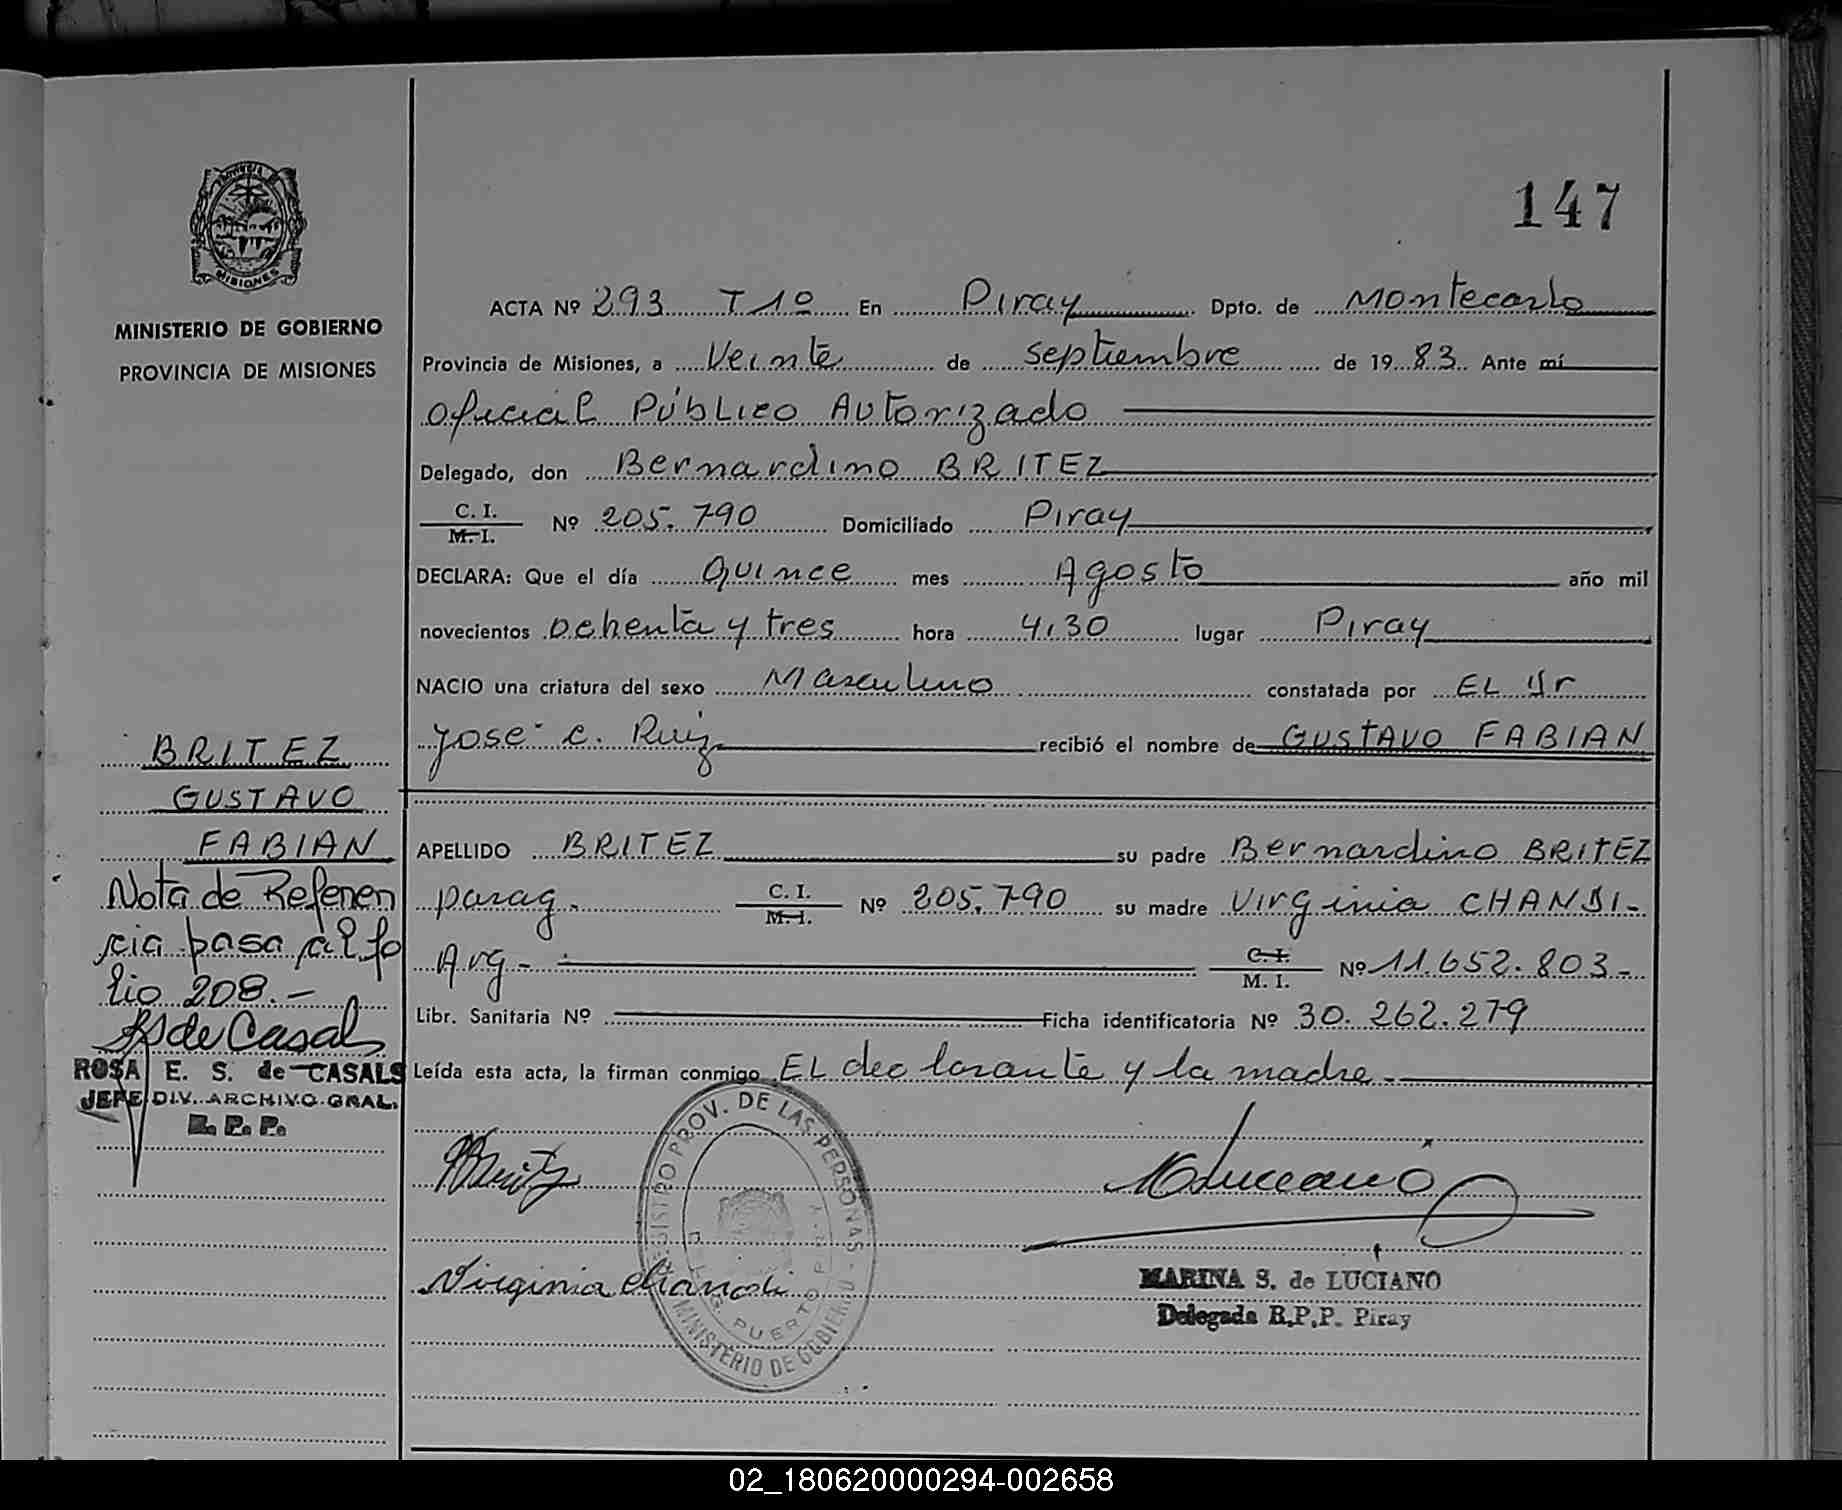 PROVINCIA DE
MISIONES
MINISTERIO DE GOBIERNO
PROVINCIA DE MISIONES
BRITEZ
GUSTAVO
FABIAN
Nota de Referen
cia pasa al fo
lio 208.-
RS de Casals
ROSA E. S. de CASALS
JEFE DIV. ARCHIVO GRAL.
R. P. P.
147
ACTA Nº 293 T 1º En Piray Dpto. de Montecarlo
Provincia de Misiones, a Veinte de septiembre de 1983 Ante mí
oficial Público Autorizado
Delegado, don Bernardino BRITEZ
C. I.
M. I. Nº 205.790 Domiciliado Piray
DECLARA: Que el día Quince mes Agosto año mil
novecientos ochenta y tres hora 4,30 lugar Piray
NACIO una criatura del sexo Masculino constatada por EL Sr
José C. Ruiz recibió el nombre de GUSTAVO FABIAN
APELLIDO BRITEZ su padre Bernardino BRITEZ
parag. C. I.
M. I. Nº 205.790 su madre Virginia CHANDI-
Arg- C. I.
M. I. Nº 11.652.803-
Libr. Sanitaria Nº Ficha identificatoria Nº 30.262.279
Leída esta acta, la firman conmigo EL declarante y la madre-
REGISTRO PROV. DE LAS PERSONAS - MINISTERIO DE GOBIERNO
PUERTO
Britez
MLuciano
Virginia Chandi
MARINA S. de LUCIANO
Delegada R.P.P. Piray
02_180620000294-002658